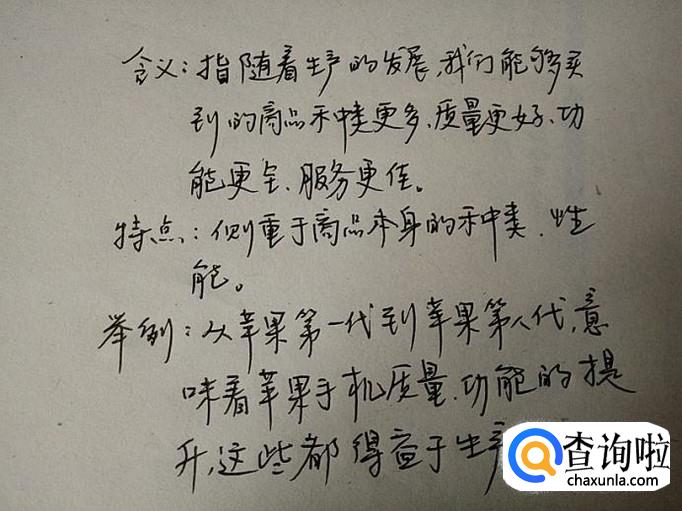 含义：指随着生产的发展，我们能够买
到的商品种类更多、质量更好、功
能更全、服务更佳。
特点：侧重于商品本身的种类、性
能。
举例：从苹果第一代到苹果第八代，意
味着苹果手机质量、功能的提
升，这些都得益于生产
查询啦
chaxunla.com